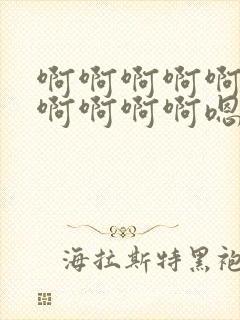 啊啊啊啊啊
啊啊啊啊嗯
海拉斯特黑袍